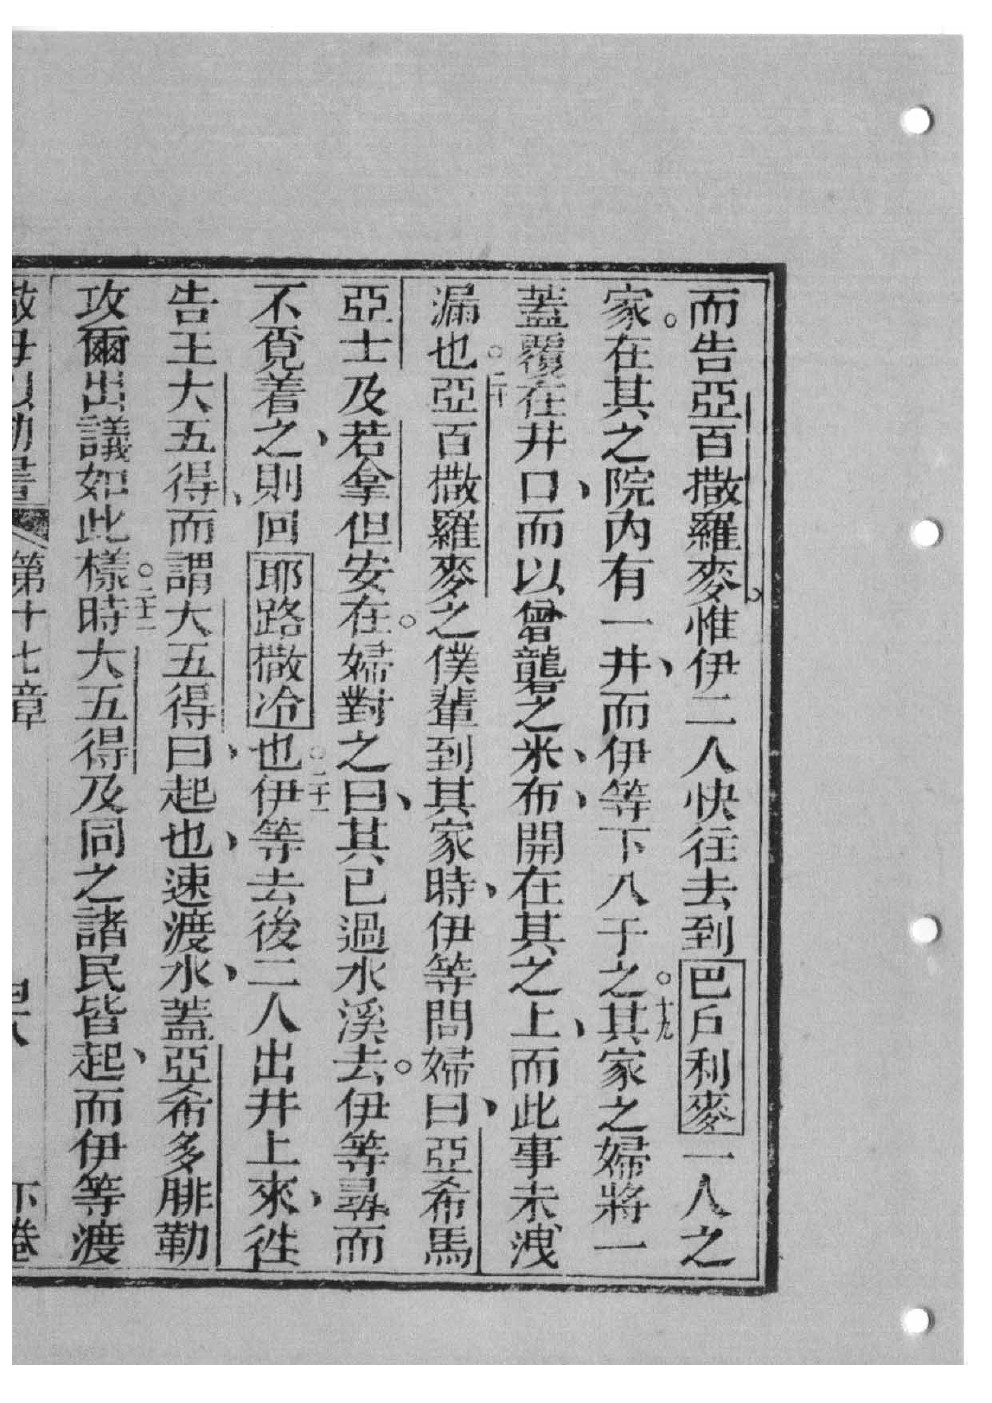 而告亞百撒羅麥、惟伊二人快往去到巴戶利麥一人之
家。在其之院內有一井、而伊等下入于之。十九其家之婦將一
蓋覆在井口、而以曾礱之米、布開在其之上、而此事未洩
漏也。二十亞百撒羅麥之僕輩到其家時、伊等問婦曰、亞希馬
亞士及若拿但安在。婦對之曰、其已過水溪去。伊等尋而
不覓着之、則回耶路撒冷也。二十一伊等去後二人出井上來、徃
告王大五得、而謂大五得曰、起也、速渡水、蓋亞希多腓勒
攻爾出議如此樣。二十二時大五得及同之諸民皆起、而伊等渡
第十七章 下卷